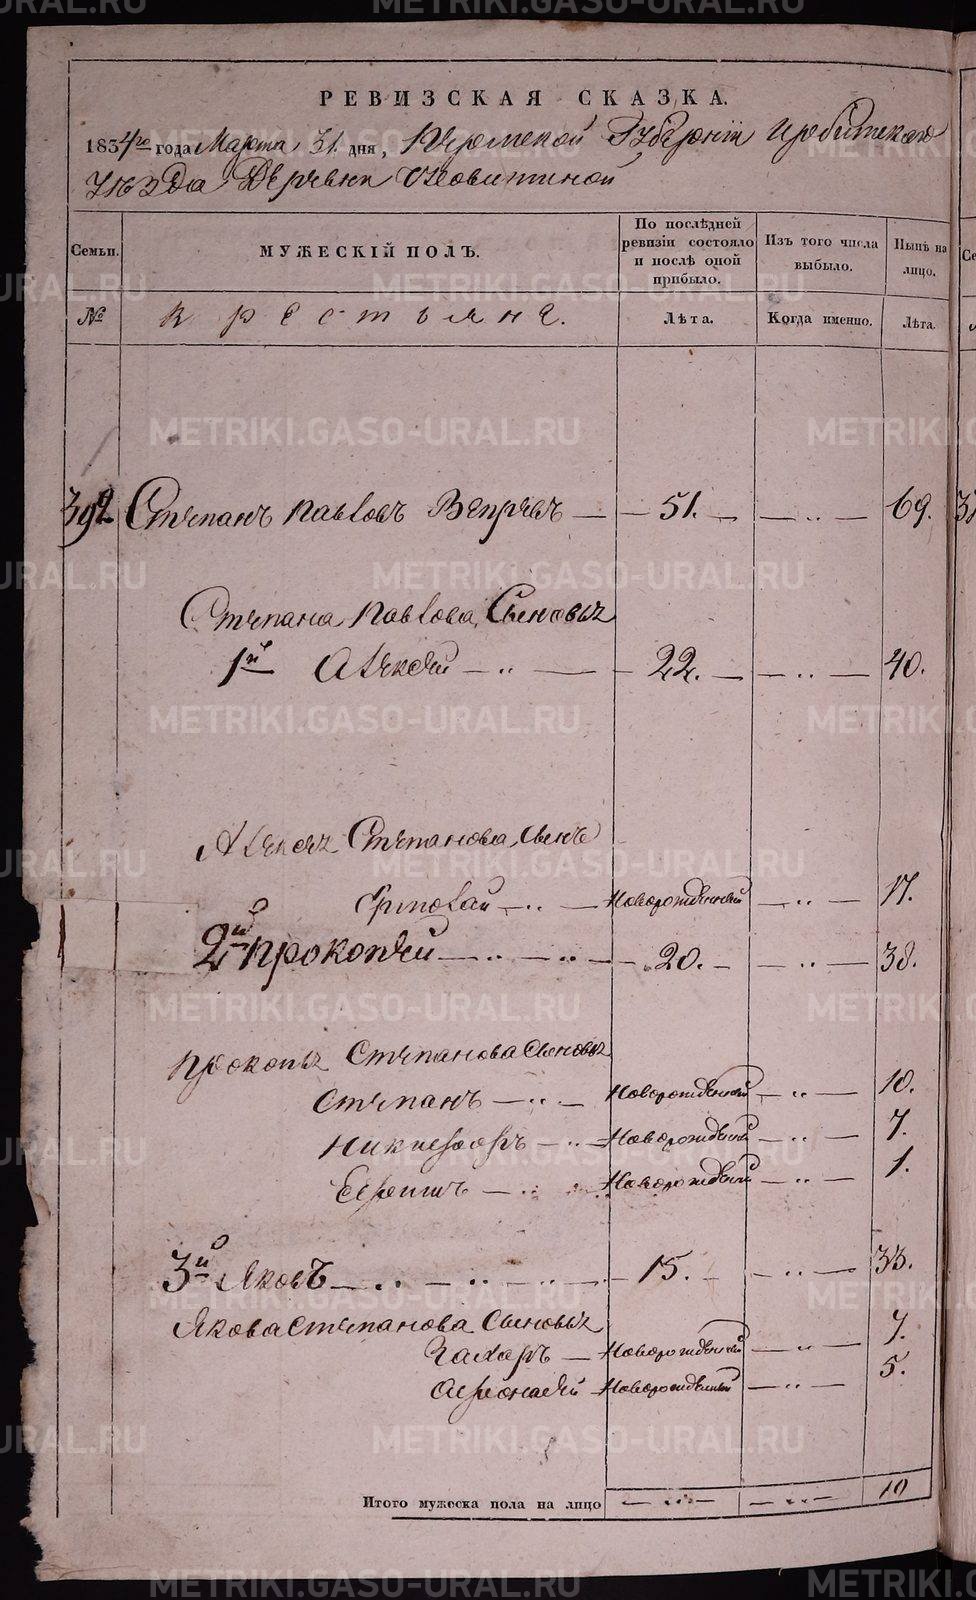 РЕВИЗСКАЯ СКАЗКА.
1834го года Марта 31. дня, Пермской Губернiи Ирбитскаго
Уѣзда Деревни
Семьи. МУЖЕСКIЙ ПОЛЪ. По послѣдней ревизiи состояло и послѣ оной прибыло. Изъ того числа выбыло. Нынѣ на лицо.
№ Крестьяне. Лѣта. Когда именно. Лѣта.
392 Степанъ Павловъ Вепревъ 51. 69.
Степана Павлова Сыновья
1й Алексей 22. 40.
Алексея Степанова Сынъ
Новорожденный 17.
2й Прокопей 20. 38.
Прокопья Степанова Сыновья
Степанъ Новорожденный 10.
Никифоръ Новорожденный 7.
Ефимъ Новорожденный 1.
3й Яковъ 15. 33.
Якова Степанова Сыновья
Захаръ Новорожденный 7.
Афонасей Новорожденный 5.
Итого мужеска пола на лицо 10
METRIKI.GASO-URAL.RU